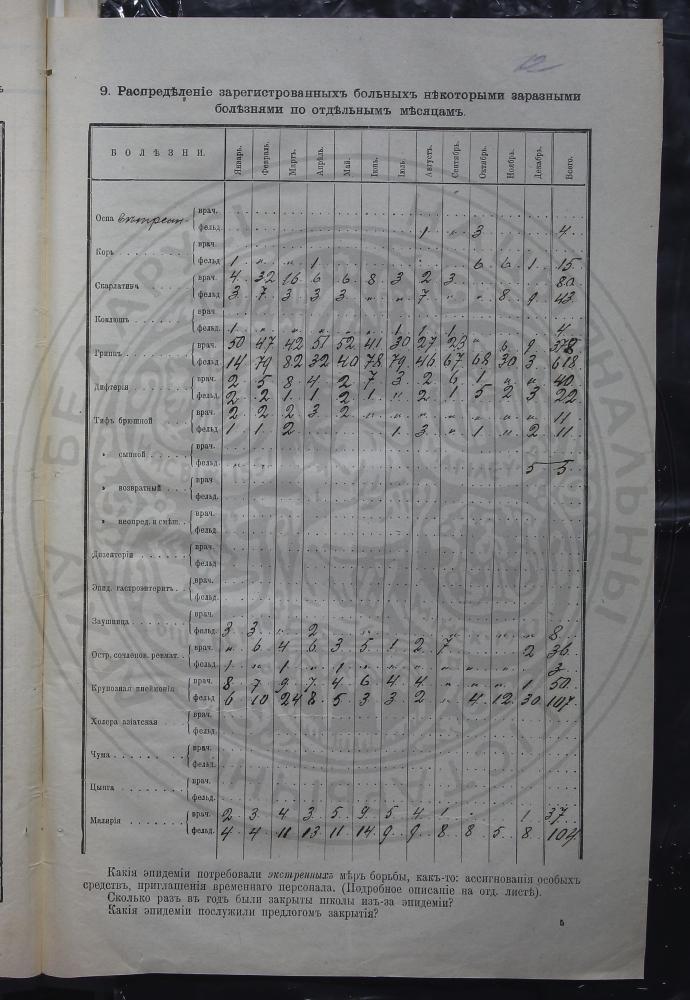 12
9. Распредѣленіе зарегистрованныхъ больныхъ нѣкоторыми заразными
болѣзнями по отдѣльнымъ мѣсяцамъ.
БОЛѢЗНИ. Январь. Февраль. Мартъ. Апрѣль. Май. Іюнь. Іюль Августъ. Сентябрь. Октябрь. Ноябрь. Декабрь. Всего.
Оспа врач.
фельд. 1 " 3 4
Корь врач.
фельд. 1 " " 1 6 6 1 15
Скарлатина врач. 4 32 16 6 6 8 3 2 3 80
фельд. 3 7 3 3 3 " " 7 " " 8 9 43
Коклюшъ врач.
фельд. 1 " " " " " 1 1 1 4
Гриппъ врач. 50 47 42 51 52 41 30 27 23 " 6 9 378
фельд. 14 79 82 32 40 78 79 46 67 68 30 3 618
Дифтерія врач. 2 5 8 4 2 7 3 2 6 1 " " 40
фельд. 2 2 1 1 2 1 " 2 1 5 2 3 22
Тифъ брюшной врач. 2 2 2 3 2 " " " " " " " 11
фельд. 1 1 2 1 3 " 1 " 2 11
" сыпной врач.
фельд. 5 5
" возвратный врач.
фельд.
" неопред. и смѣш. врач.
фельд.
Дизентерія врач.
фельд.
Эпид. гастроэнтеритъ врач.
фельд.
Заушница врач.
фельд. 3 3 " 2 " " " " 8
Остр. сочленов. ревмат. врач. " 6 4 6 3 5 1 2 7 2 36
фельд. 1 " 1 " 1 " " " " " " 3
Крупозная пнеймонія врач. 8 7 9 7 4 6 4 4 " " " 1 50
фельд. 6 10 24 8 5 3 3 2 " 4 12 30 107
Холера азіатская врач.
фельд.
Чума врач.
фельд.
Цынга врач.
фельд.
Малярія врач. 2 3 4 3 5 9 5 4 1 1 37
фельд. 4 4 11 13 11 14 9 9 8 8 5 8 104
Какія эпидеміи потребовали экстренныхъ мѣръ борьбы, какъ-то: ассигнованія особыхъ
средствъ, приглашенія временнаго персонала. (Подробное описаніе на отд. листѣ).
Сколько разъ въ годъ были закрыты школы изъ-за эпидеміи?
Какія эпидеміи послужили предлогомъ закрытія?
5